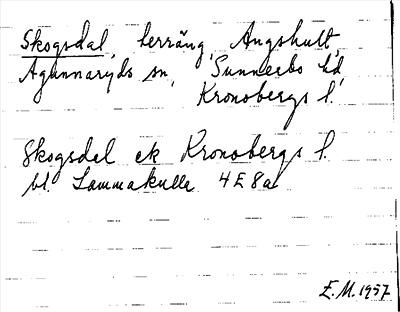 Skogsdal, terräng, Angshult,
Agunnaryds sn, Sunnerbo hd,
Kronobergs l.
Skogsdal ek Kronobergs l.
bl. Lammakulla 4E8a
E.M. 1957